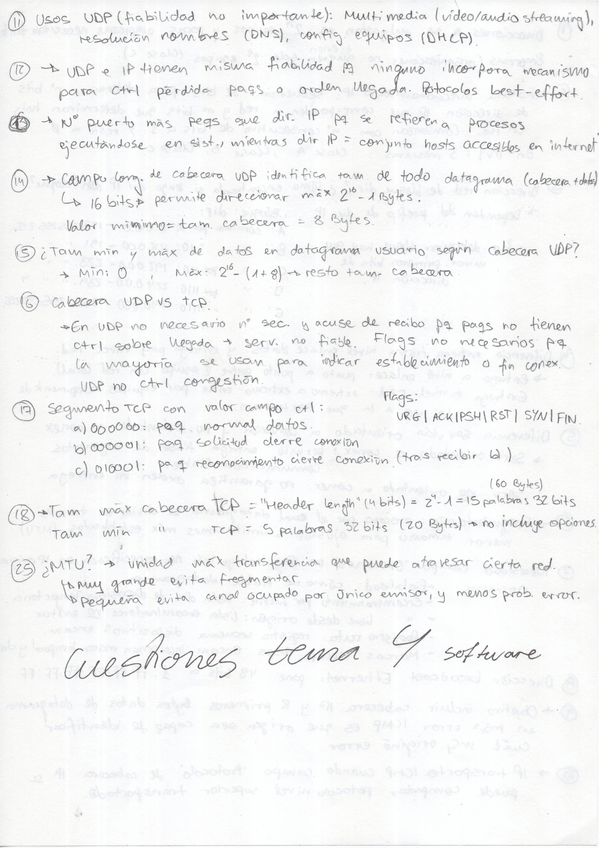 11 Usos UDP (fiabilidad no importante): Multimedia (video/audio streaming),
resolución nombres (DNS), config equipos (DHCP).
12 → UDP e IP tienen misma fiabilidad pq ninguno incorpora mecanismo
para ctrl pérdida paqs o orden llegada. Protocolos best-effort.
→ Nº puerto más peqs que dir. IP pq se refieren a procesos
ejecutándose en sist., mientras dir IP = conjunto hosts accesibles en internet
14 → Campo long. de cabecera UDP identifica tam de todo datagrama (cabecera+datos)
↳ 16 bits → permite direccionar máx 2^16 - 1 Bytes.
Valor mínimo = tam. cabecera = 8 Bytes.
15 ¿Tam min y máx de datos en datagrama usuario según cabecera UDP?
→ Min: 0 , Máx: 2^16 - (1+8) → resto tam. cabecera
16 Cabecera UDP vs TCP.
→ En UDP no necesario nº sec. y acuse de recibo pq paqs no tienen
ctrl sobre llegada → serv. no fiable. Flags no necesarios pq
la mayoría se usan para indicar establecimiento o fin conex.
UDP no ctrl congestión.
17 Segmento TCP con valor campo ctl: Flags:
a) 000000: paq normal datos. URG|ACK|PSH|RST|SYN|FIN
b) 000001: paq solicitud cierre conexión
c) 010001: paq reconocimiento cierre conexión (tras recibir b)
(60 Bytes)
18 → Tam máx cabecera TCP = "Header length" (4 bits) = 2^4 - 1 = 15 palabras 32 bits
Tam min " TCP = 5 palabras 32 bits (20 Bytes) → no incluye opciones.
25 ¿MTU? → unidad máx transferencia que puede atravesar cierta red.
↳ Muy grande evita fragmentar
↳ Pequeña evita canal ocupado por único emisor, y menos prob. error.
Cuestiones tema 4 software